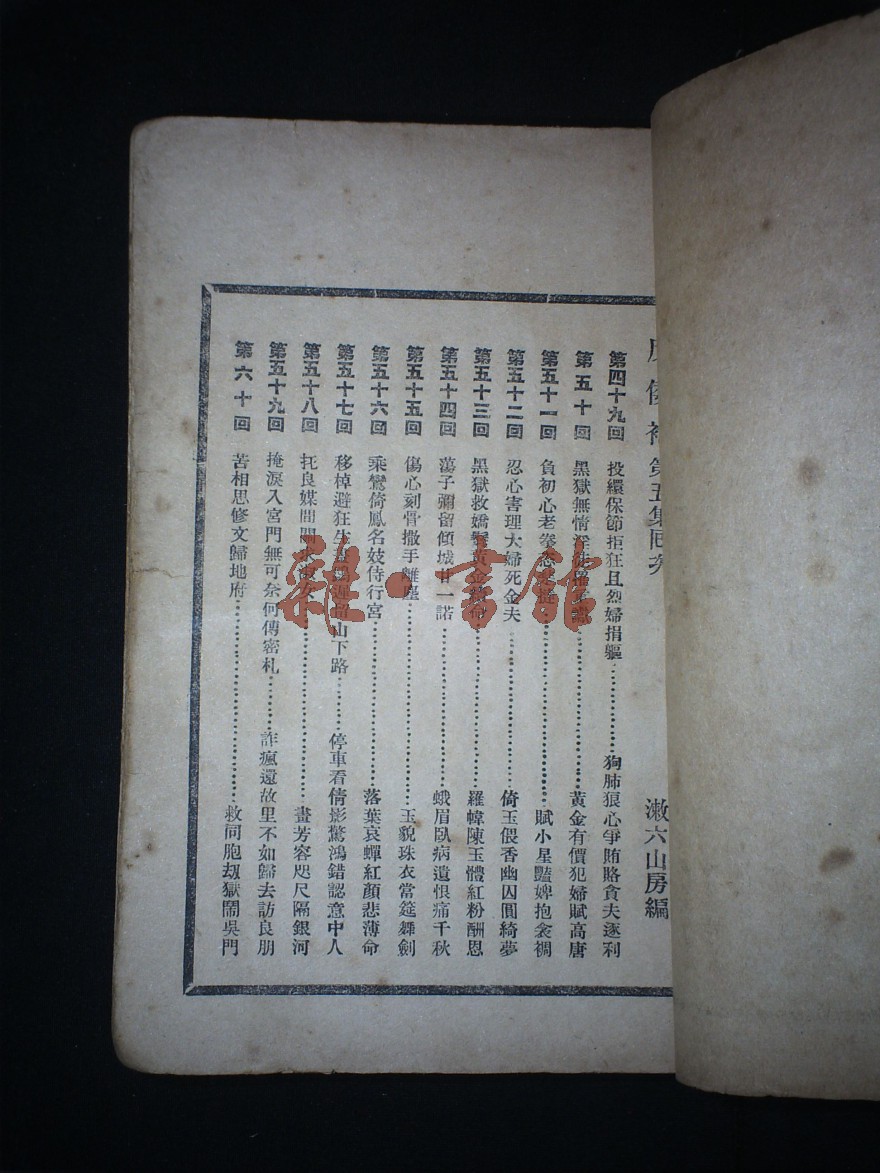 第五集回 漱六山房編
第四十九回 投繯保節拒狂且烈婦捐軀 狗肺狼心爭賄賂貪夫逐利
第五十回 黑獄無情淫徒 黃金有價犯婦賦高唐
第五十一回 負初心老拳 賦小星豔婢抱衾裯
第五十二回 忍心害理大婦死金夫 倚玉偎香幽囚圓綺夢
第五十三回 黑獄救嬌 黃金 羅幃陳玉體紅粉酬恩
第五十四回 蕩子彌留傾城甘一諾 蛾眉臥病遺恨痛千秋
第五十五回 傷心刻骨撒手離塵 玉貌珠衣當筵舞劍
第五十六回 乘鸞倚鳳名妓侍行宮 落葉哀蟬紅顏悲薄命
第五十七回 移棹避狂生 遲留山下路 停車看倩影驚鴻錯認意中人
第五十八回 托良媒間關求淑女 畫芳容咫尺隔銀河
第五十九回 掩淚入宮門無可奈何傳密札 詐瘋還故里不如歸去訪良朋
第六十回 苦相思修文歸地府 救同胞劫獄鬧吳門
雜·書館